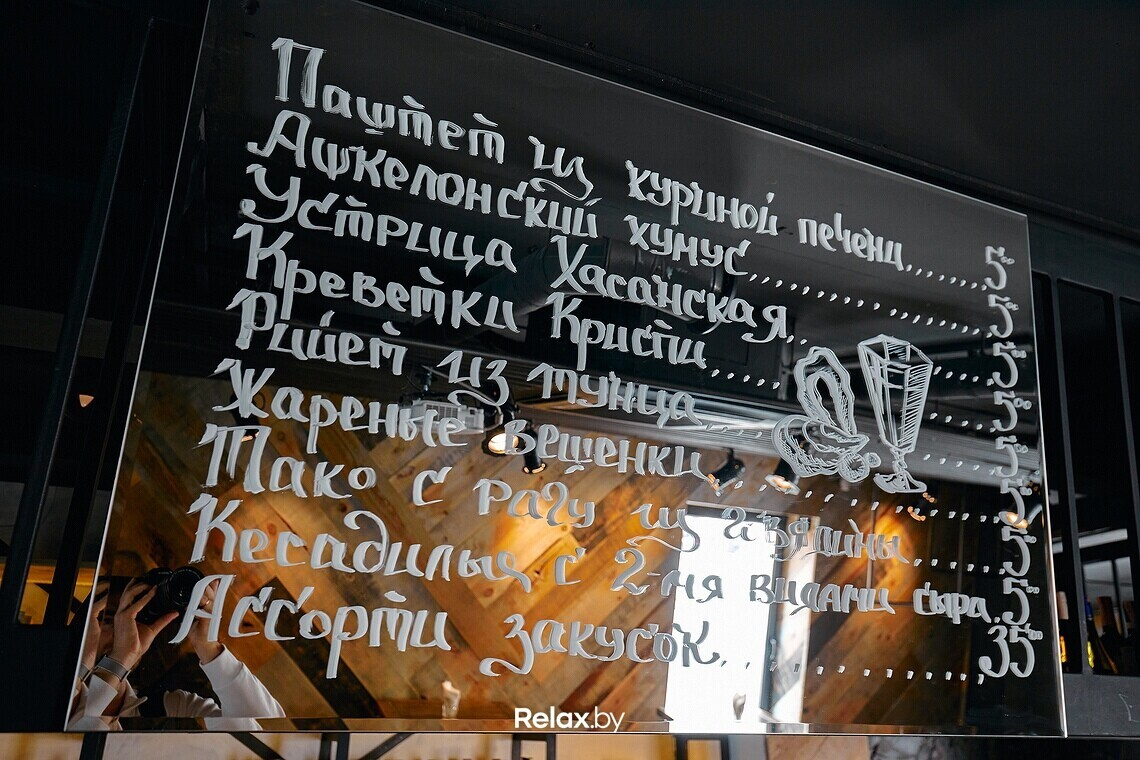 Паштет из куриной печени......5⁰⁰
Ашкелонский хумус..................5⁰⁰
Устрица Хасанская..............5⁰⁰
Креветки Кристи..............5⁰⁰
Рийет из тунца..............5⁰⁰
Жареные вешенки..............5⁰⁰
Тако с рагу из говядины......5⁰⁰
Кесадилья с 2-мя видами сыра.5⁰⁰
Ассорти закусок..............35⁰⁰
Relax.by